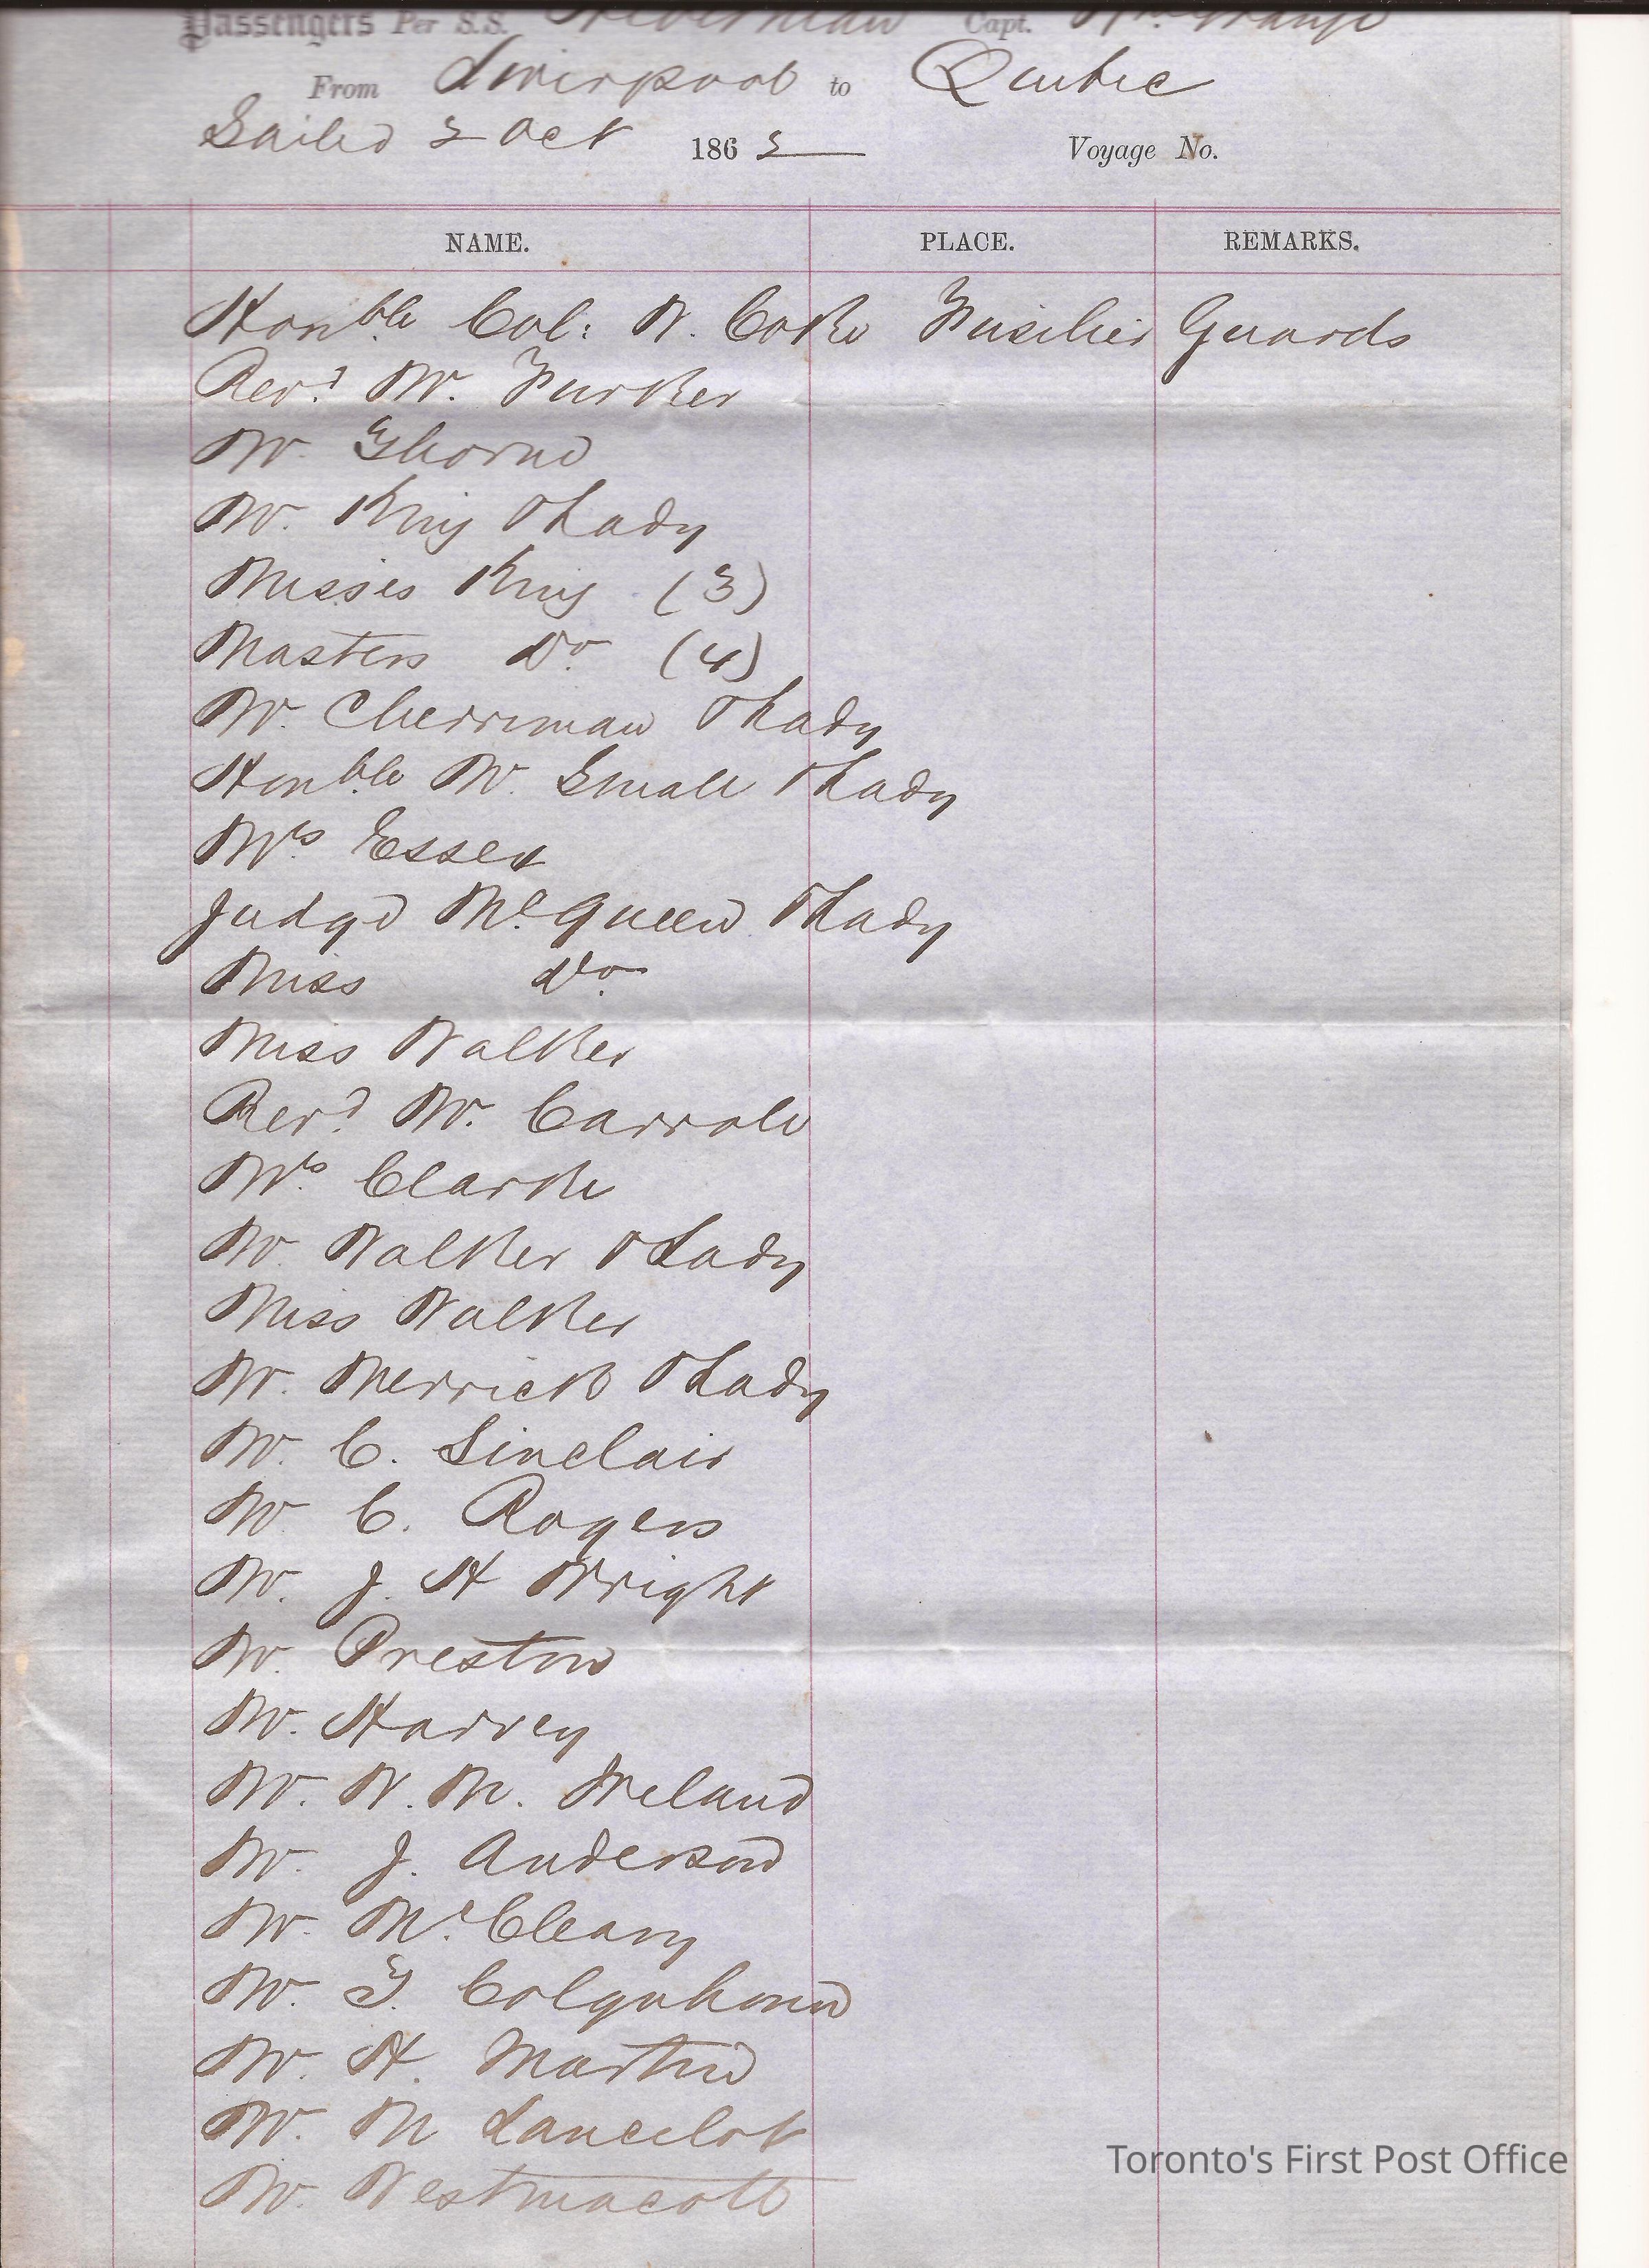 Passengers Per S.S. Hibernian Capt.
From Liverpool to Quebec
Sailed 2 Oct 1862 Voyage No.
NAME. PLACE. REMARKS.
Honble Col: W. Coke Fusilier Guards
Revd Mr. Furker
Mr. Thorne
Mr. King & Lady
Misses King (3)
Masters Do (4)
Mr. Cherriman & Lady
Honble Mr Small & Lady
Mrs Essex
Judge McQueen & Lady
Miss Do
Miss Walker
Revd Mr. Carroll
Mrs Clarke
Mr Walker & Lady
Miss Walker
Mr. Merrick & Lady
Mr. C. Sinclair
Mr C. Rogers
Mr. J. H Wright
Mr. Preston
Mr. Harvey
Mr. W. M. Ireland
Mr. J. Anderson
Mr. McCleary
Mr. T. Colquhoun
Mr. H. Martin
Mr. M Lancelot
Mr. Westmacott
Toronto's First Post Office